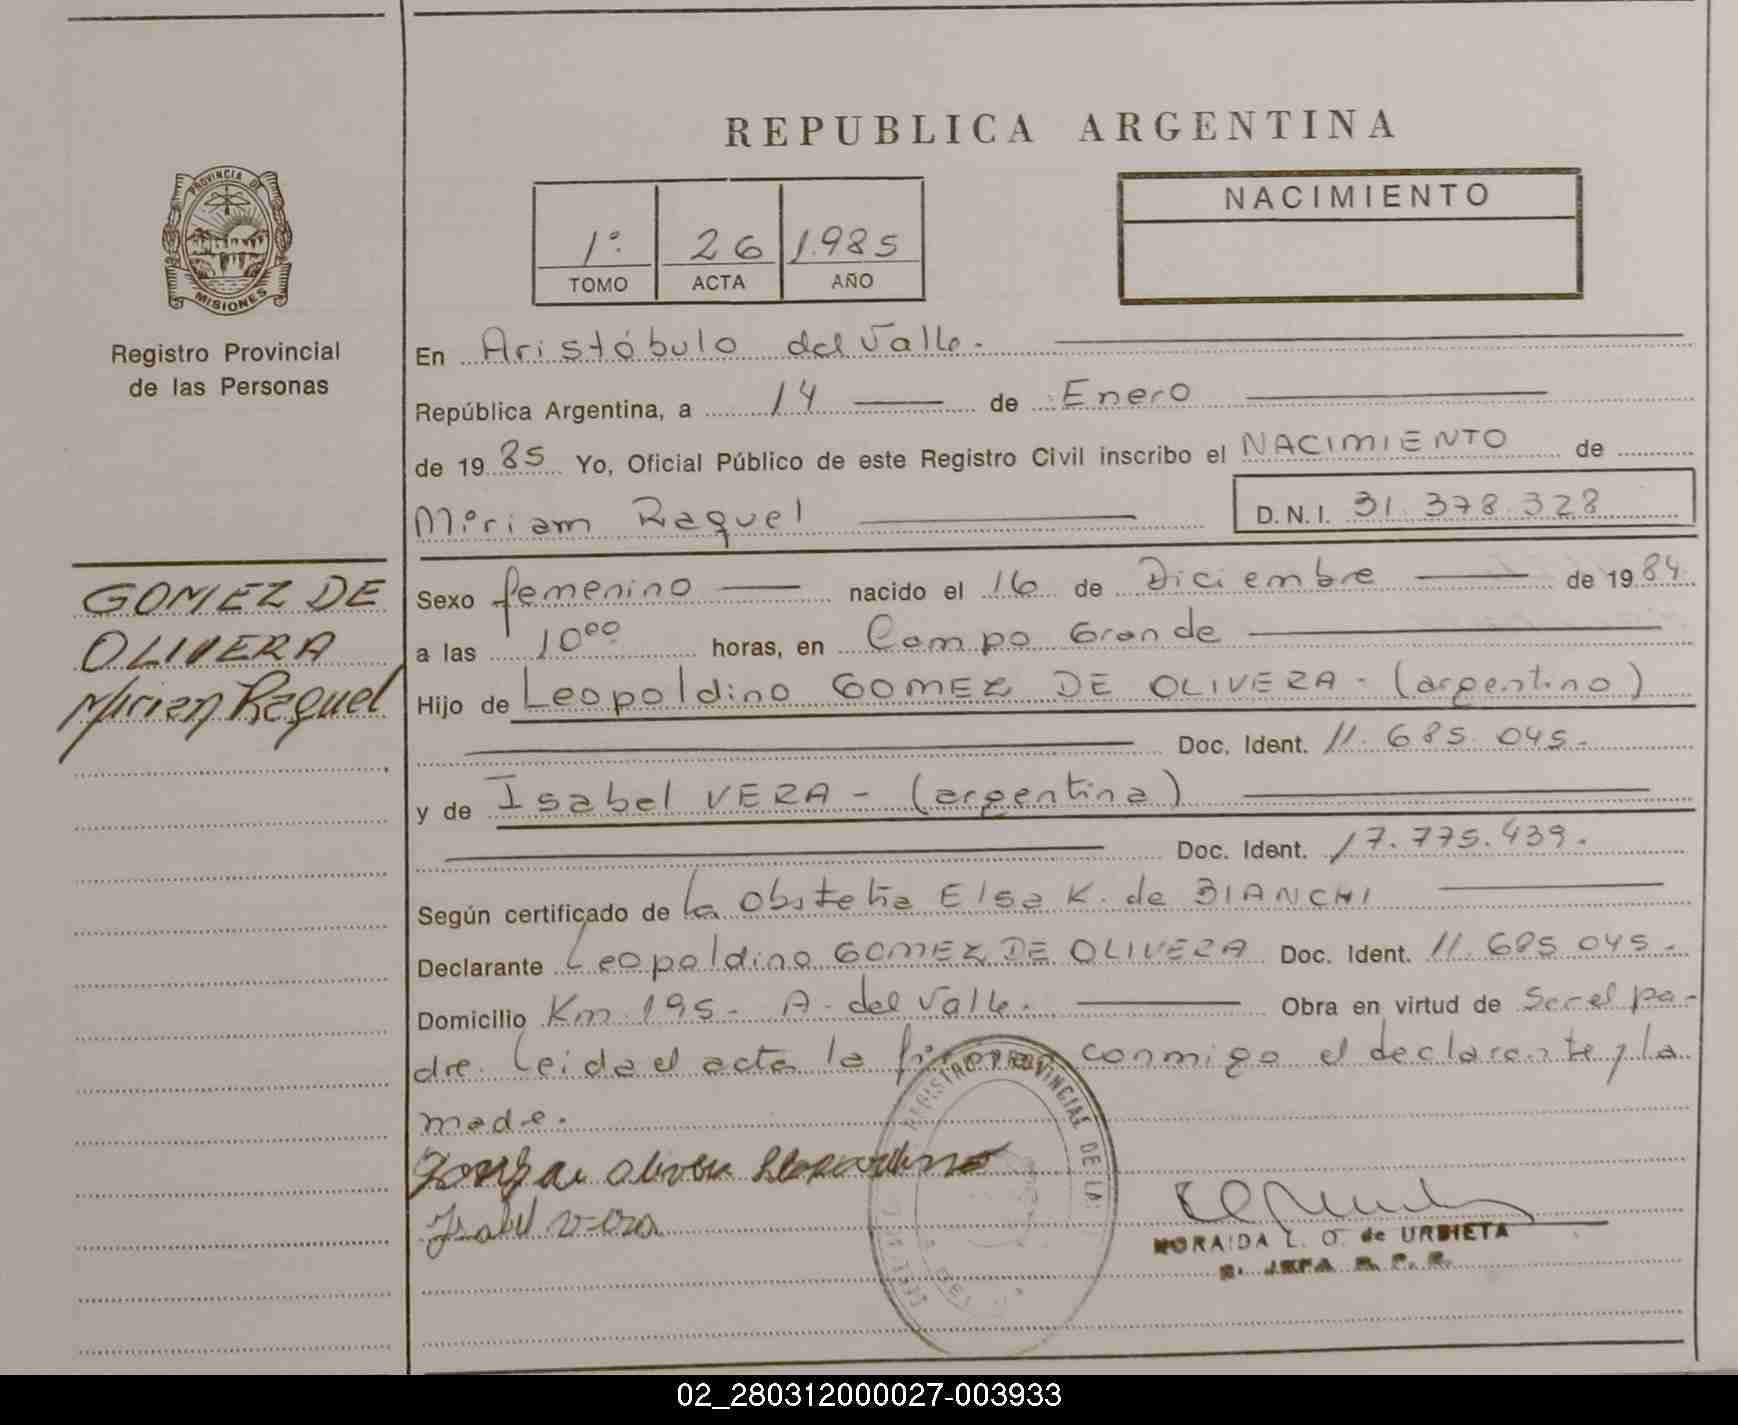 REPUBLICA ARGENTINA
PROVINCIA DE
MISIONES
Registro Provincial
de las Personas
1º
26
1.985
TOMO
ACTA
AÑO
NACIMIENTO
En Aristóbulo del Valle.
República Argentina, a 14 de Enero
de 1985 Yo, Oficial Público de este Registro Civil inscribo el NACIMIENTO de
Miriam Raquel
D.N.I. 31.378.328
GOMEZ DE
OLIVERA
Mirian Raquel
Sexo femenino nacido el 16 de Diciembre de 1984
a las 10⁰⁰ horas, en Campo Grande
Hijo de Leopoldino GOMEZ DE OLIVERA - (argentino)
Doc. Ident. 11.685.045.
y de Isabel VERA - (argentina)
Doc. Ident. 17.775.439.
Según certificado de la Obstetra Elsa K. de BIANCHI
Declarante Leopoldino GOMEZ DE OLIVERA Doc. Ident. 11.685.045.
Domicilio Km 195 - A. del Valle. Obra en virtud de Ser el pa-
dre. Leida el acta la firman conmigo el declarante y la
madre.
Isabel Vera
REGISTRO PROVINCIAL DE LA
NORAIDA L. O. de URBIETA
02_280312000027-003933